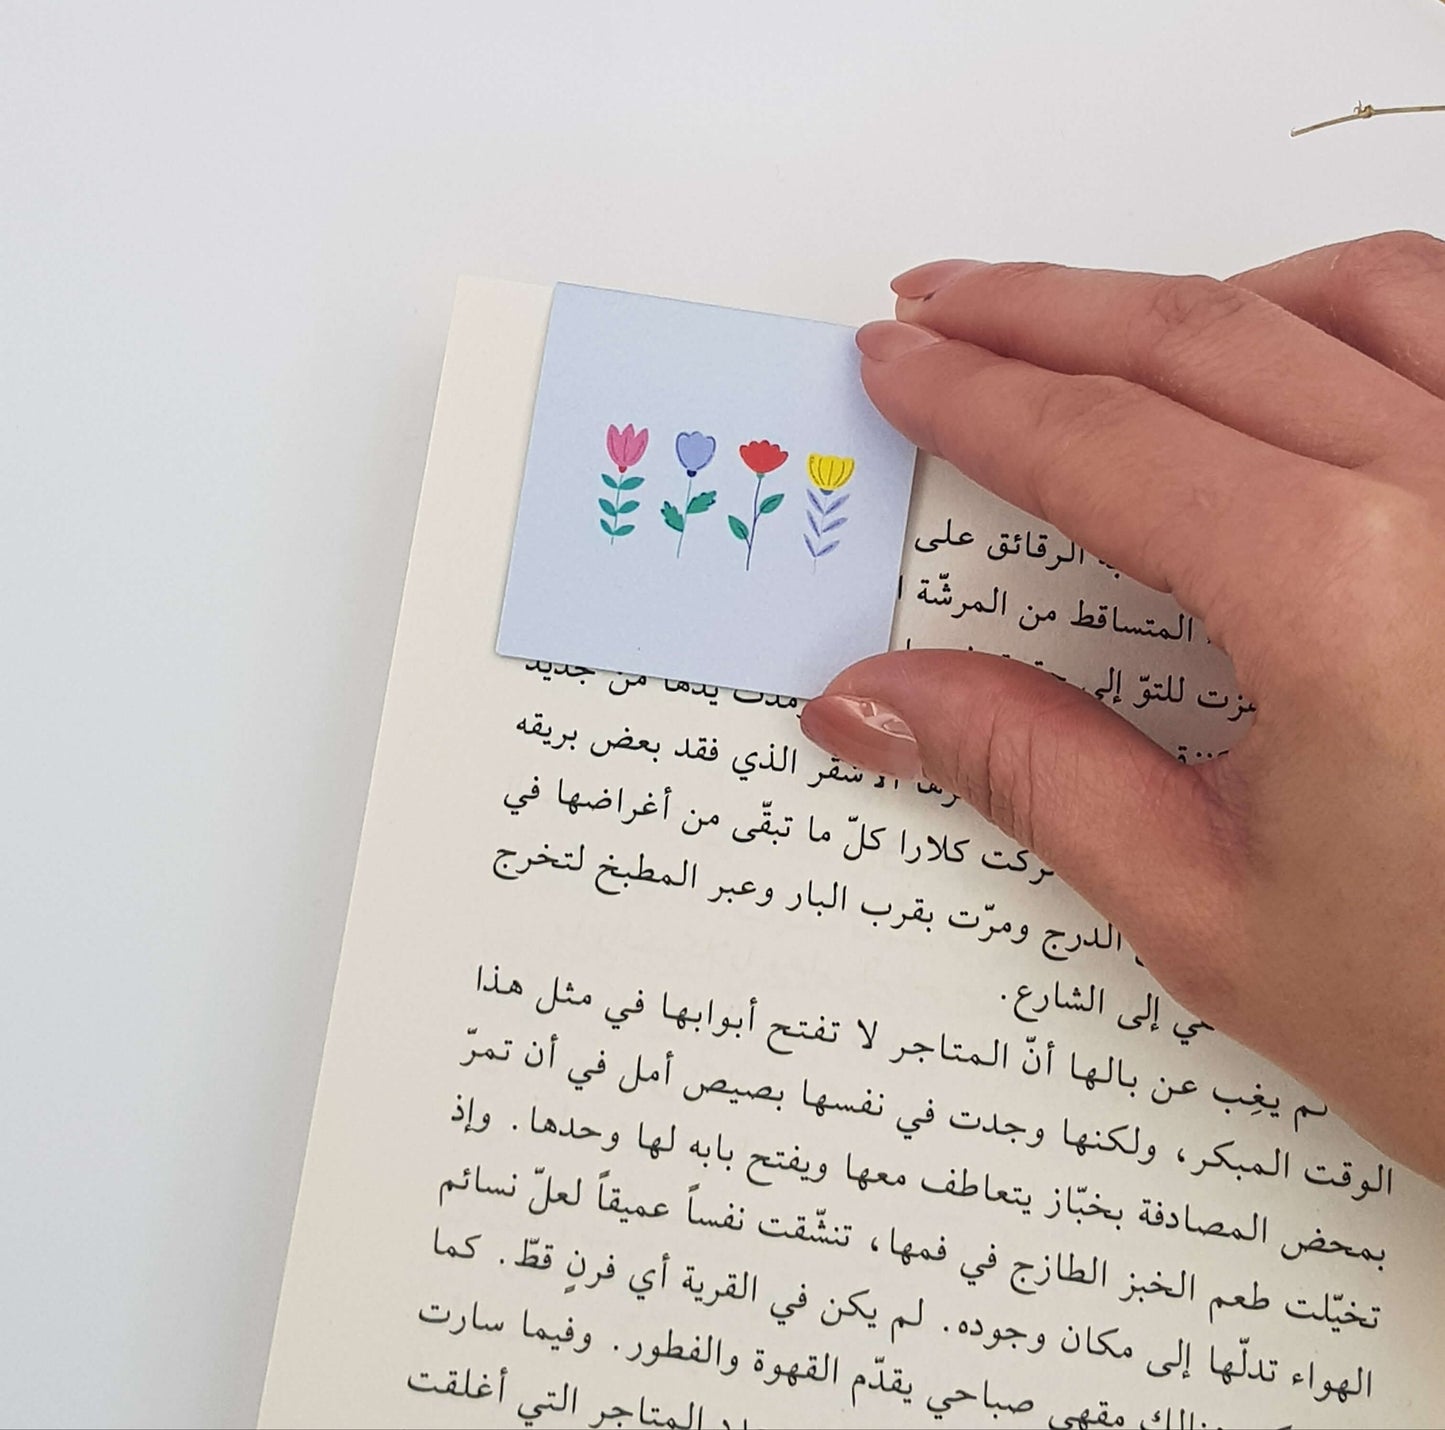 الرقائق على
المتساقط من المرشّة
للتوّ إلى
يدها من جديد
الأشقر الذي فقد بعض بريقه
تركت كلارا كلّ ما تبقّى من أغراضها في
الدرج ومرّت بقرب البار وعبر المطبخ لتخرج
إلى الشارع.
لم يغِب عن بالها أنّ المتاجر لا تفتح أبوابها في مثل هذا
الوقت المبكر، ولكنها وجدت في نفسها بصيص أمل في أن تمرّ
بمحض المصادفة بخبّاز يتعاطف معها ويفتح بابه لها وحدها. وإذ
تخيّلت طعم الخبز الطازج في فمها، تنشّقت نفساً عميقاً لعلّ نسائم
الهواء تدلّها إلى مكان وجوده. لم يكن في القرية أي فرنٍ قطّ. كما
مقهى صباحي يقدّم القهوة والفطور. وفيما سارت
المتاجر التي أغلقت